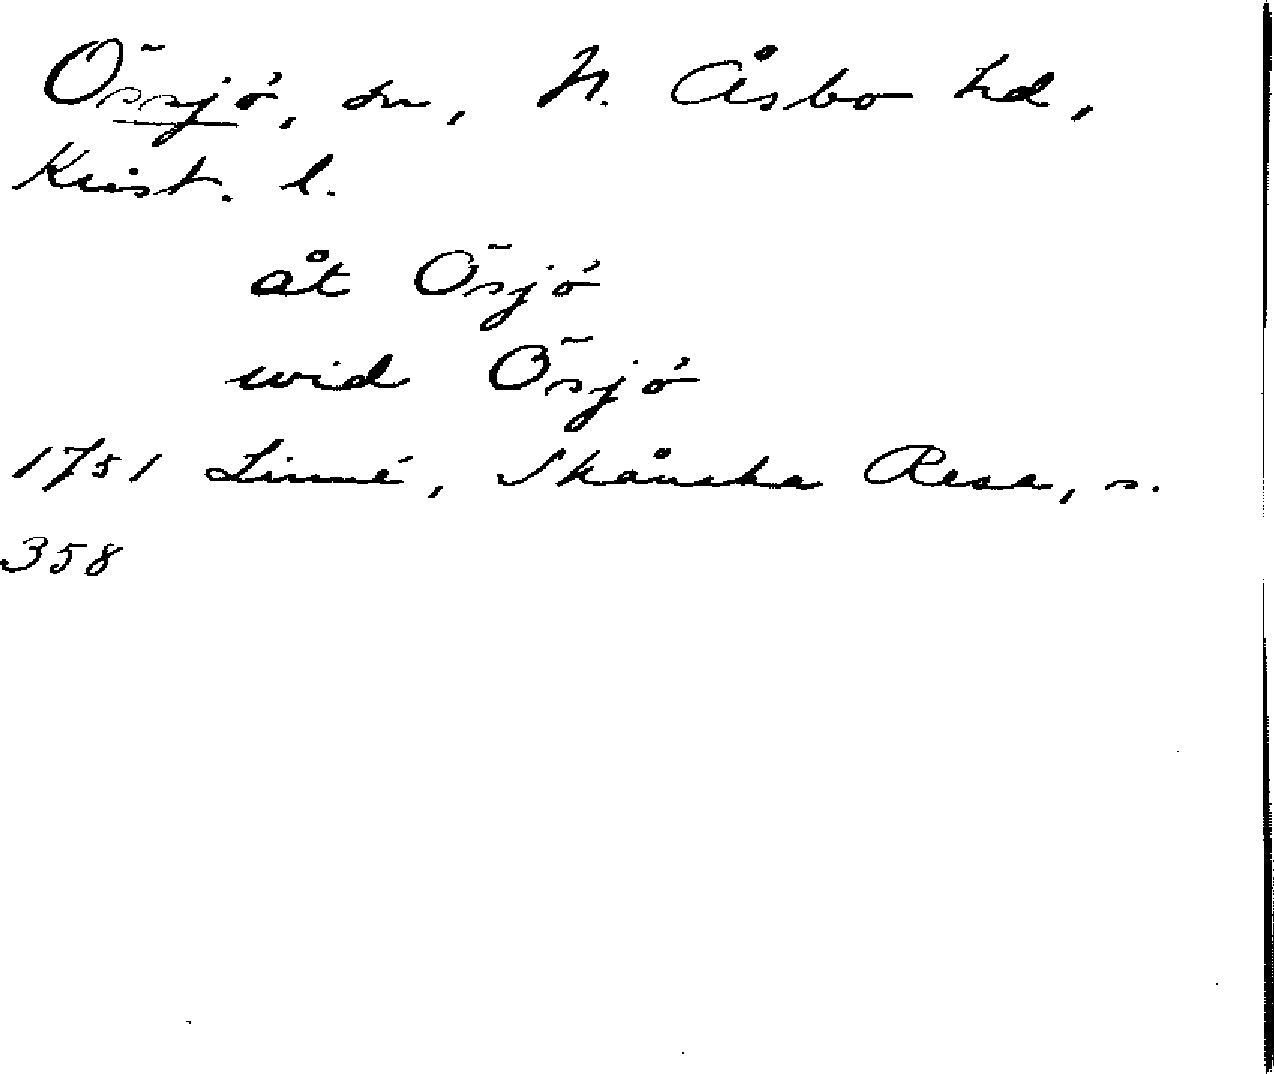 Össjö, sn, N. Åsbo hd,
Krist. l.
åt Ösjö
wid Ösjö
1751 Linné, Skånska Resa, s.
358